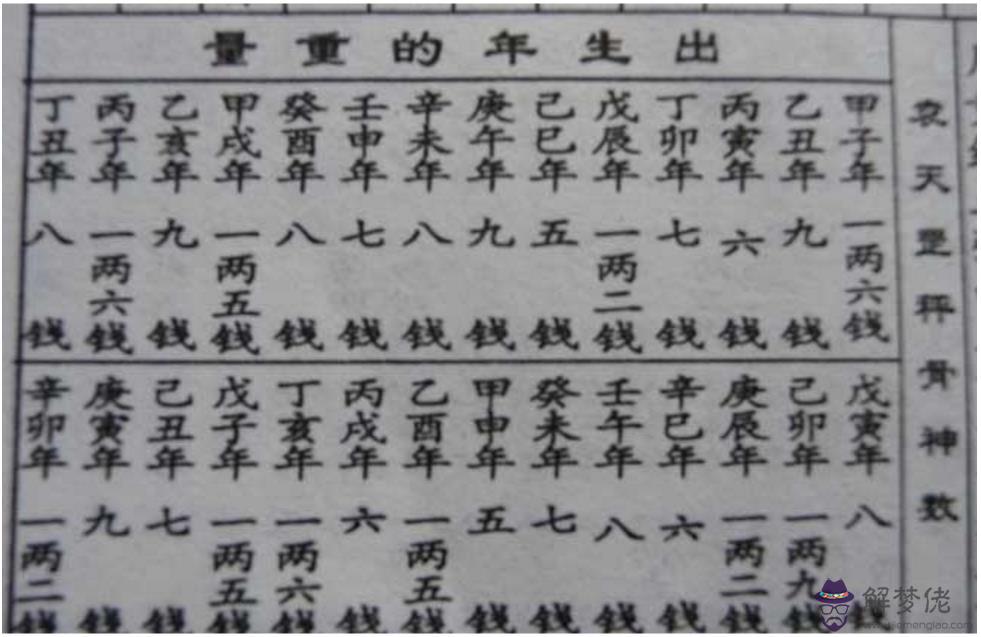 袁天罡秤骨神数
出生年的重量
甲子年 一两六钱
乙丑年 九钱
丙寅年 六钱
丁卯年 七钱
戊辰年 一两二钱
己巳年 五钱
庚午年 九钱
辛未年 八钱
壬申年 七钱
癸酉年 八钱
甲戌年 一两五钱
乙亥年 九钱
丙子年 一两六钱
丁丑年 八钱
戊寅年 八钱
己卯年 一两九钱
庚辰年 一两二钱
辛巳年 六钱
壬午年 八钱
癸未年 七钱
甲申年 五钱
乙酉年 一两五钱
丙戌年 六钱
丁亥年 一两六钱
戊子年 一两五钱
己丑年 七钱
庚寅年 九钱
辛卯年 一两二钱
解梦佬